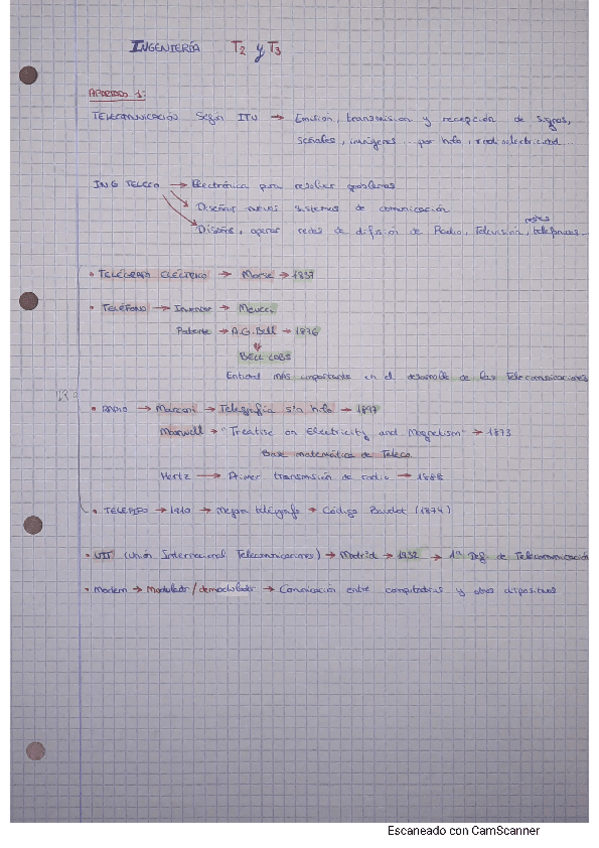 INGENIERÍA T2 y T3
APARTADO 1:
TELECOMUNICACIÓN Según ITU → Emisión, transmisión y recepción de signos,
señales, imágenes... por hilo, radioelectricidad...
ING TELECO → Electrónica para resolver problemas
→ Diseñar nuevos sistemas de comunicación
redes
→ Diseñar, operar redes de difusión de Radio, Televisión, telefónicas...
• TELÉGRAFO ELÉCTRICO → Morse → 1837
• TELÉFONO → Inventor → Meucci
Patente → A.G. Bell → 1876
↓
BELL LABS
Entidad más importante en el desarrollo de las Telecomunicaciones
• RADIO → Marconi → Telegrafía sin hilo → 1897
Maxwell → "Treatise on Electricity and Magnetism" → 1873
Base matemática de Teleco
Hertz → Primer transmisión de radio → 1888
• TELETIPO → 1910 → Mejora telégrafo → Código Baudot (1874)
• UIT (Unión Internacional Telecomunicaciones) → Madrid → 1932 → 1ª Def. de Telecomunicación
• Modem → Modulador/demodulador → Comunicación entre computadoras y otros dispositivos
Escaneado con CamScanner